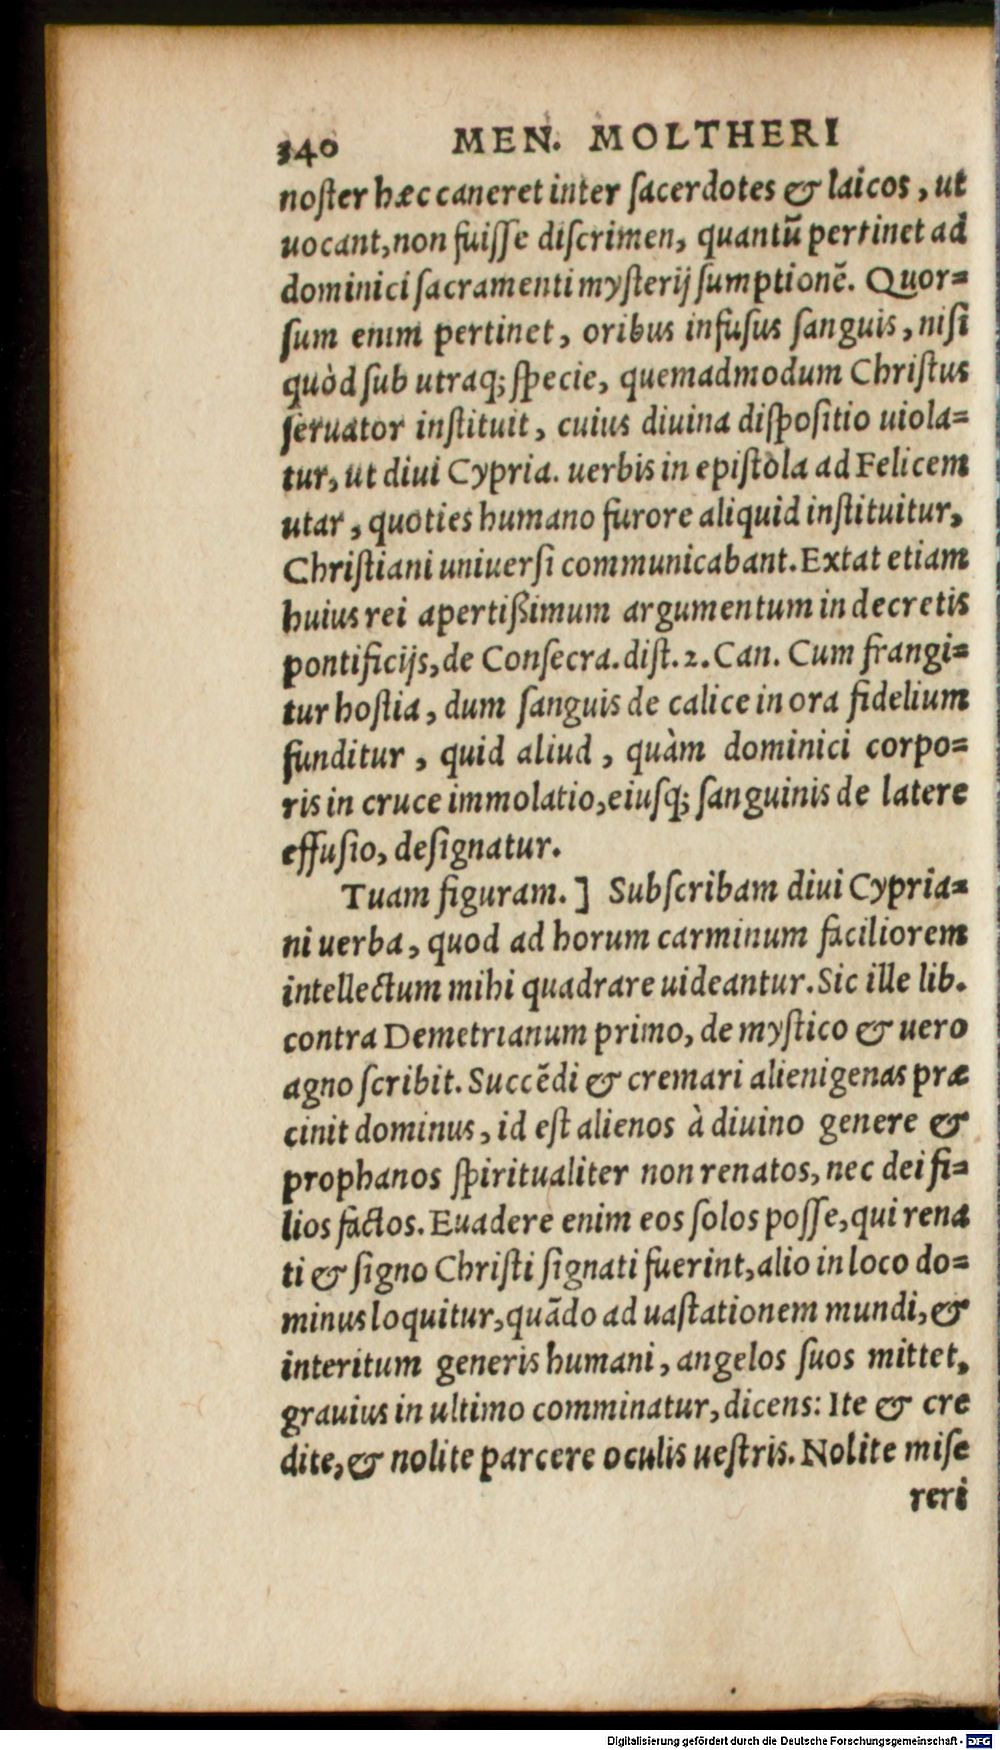 340 MEN. MOLTHERI
noſter hæc caneret inter ſacerdotes & laicos, ut
uocant, non fuiſſe diſcrimen, quantũ pertinet ad
dominici ſacramenti myſterij ſumptionẽ. Quor=
ſum enim pertinet, oribus infuſus ſanguis, niſi
quòd ſub utraq; ſpecie, quemadmodum Chriſtus
ſeruator inſtituit, cuius diuina diſpoſitio uiola=
tur, ut diui Cypria. uerbis in epiſtola ad Felicem
utar, quoties humano furore aliquid inſtituitur,
Chriſtiani uniuerſi communicabant. Extat etiam
huius rei apertißimum argumentum in decretis
pontificijs, de Conſecra. diſt. 2. Can. Cum frangi=
tur hoſtia, dum ſanguis de calice in ora fidelium
funditur, quid aliud, quàm dominici corpo=
ris in cruce immolatio, eiuſq; ſanguinis de latere
effuſio, deſignatur.
Tuam figuram.] Subſcribam diui Cypria=
ni uerba, quod ad horum carminum faciliorem
intellectum mihi quadrare uideantur. Sic ille lib.
contra Demetrianum primo, de myſtico & uero
agno ſcribit. Succẽdi & cremari alienigenas præ
cinit dominus, id eſt alienos à diuino genere &
prophanos ſpiritualiter non renatos, nec dei fi=
lios factos. Euadere enim eos ſolos poſſe, qui rena
ti & ſigno Chriſti ſignati fuerint, alio in loco do=
minus loquitur, quãdo ad uaſtationem mundi, &
interitum generis humani, angelos ſuos mittet,
grauius in ultimo comminatur, dicens: Ite & cre
dite, & nolite parcere oculis ueſtris. Nolite miſe
reri
Digitalisierung gefördert durch die Deutsche Forschungsgemeinschaft - DFG